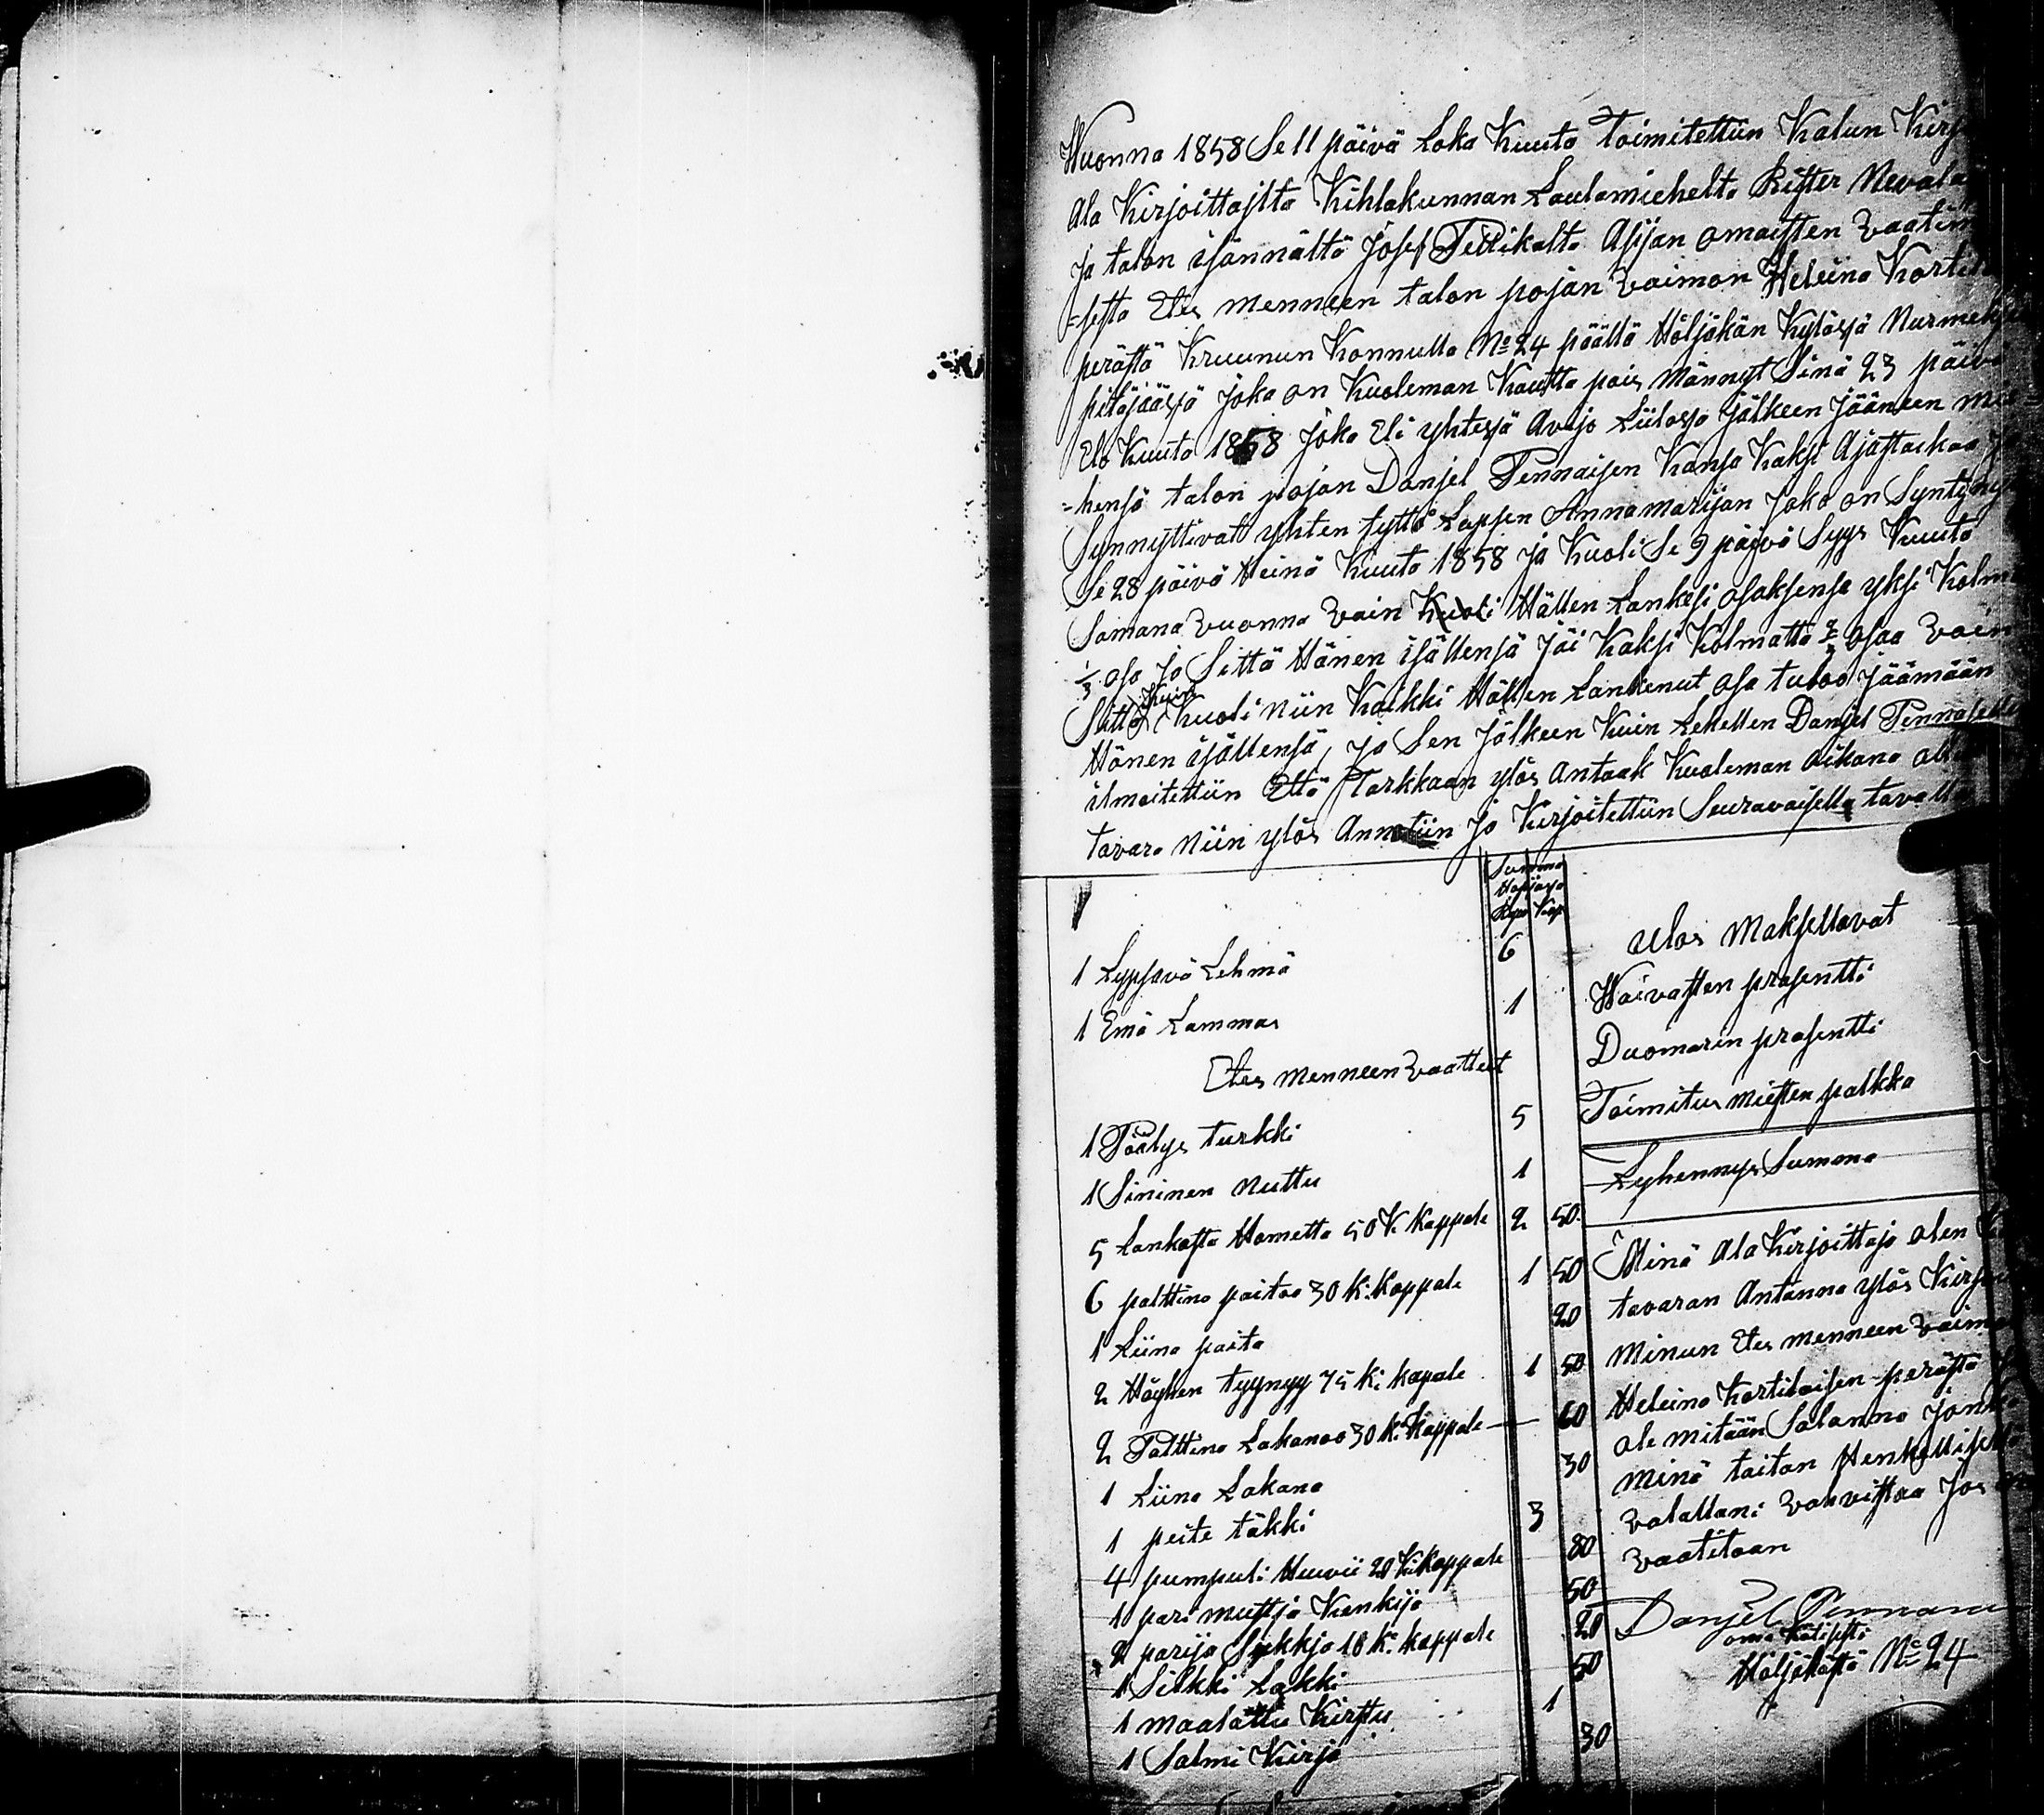 Wuonna 1858 Se 11 päivä Loka Kuuta Toimitettiin Kalun Kirj
Ala Kirjoittajilta Kihlakunnan Lautamiehelta Rister Neval
ja talon isännältä Josef Pettikalta Asijan omaisten Vaatim
=sesta Etes menneen talon pojan Vaimon Heleina Korti
perästä Kruunun Konnulla No 24 päältä Höljäkän Kylässä Nurmeksen
pitäjäässä joka on Kuoleman Kautta pois Männyt Sinä 23 päivä
Elo Kuuta 1858 Joka Eli yhtessä Avijo Liitossa jälkeen Jääneen mie
=hensä talon pojan Danjel Pennaisen Kansa Kaksi Ajastaikaa
Synnyttivat yhten tyttö Lapsen Annamarijan Joka on Syntynyt
Se 28 päivä Heinä Kuuta 1858 ja Kuoli Se 9 päivä Syys Kuuta
Samana Vuonna Vain Hällen Lankesi osaksensa yksi Kolm
1/3 osa Ja Sittä Hänen isällensä Jäi Kaksi Kolmatta 2/3 osaa Vain
Sittä Kuin Kuoli niin Kaikki Hällen Lankenut osa tuloo Jäämään
Hänen isällensä, Ja Sen Jälkeen Kuin Leskellen Danjel Pennaselle
ilmoitettiin Että Tarkkaan ylös Antaak Kuoleman aikana
tavara Niin ylös Annetiin Ja Kirjoitettiin Seuravaisella tavalla
Summa
Hopjassa
Rupl Kop
1 Lypsävä Lehmä 6
1 Emä Lammas 1
Etes menneen Vaatteet
1 Päälys turkki 5
1 Sininen Nuttu 1
5 Lankasta Hametta 50 K Kappale 2 50
6 palttina paitaa 30 K. Kappale 1 50
1 Liina paita 20
2 Höyhen tyynyy 75 K. kapale 1 50
2 Palttina Lakanaa 30 K. Kappale 60
1 Liina Lakana 30
1 peite täkki 3
4 pumpuli Huivii 20 K. kappale 80
1 pari mustja Kenkijä 50
2 parija Sukkja 10 K. kappale 20
1 Silkki Lakki 50
1 maalattu Kirstu 1
1 Salmi Kirja 30
Ulos Maksettavat
Waivasten prosentti
Duomarin prosentti
Toimitus miesten palkka
Lyhennys Summa
Minä Ala Kirjoittaja olen
tavaran Antanna ylös Kirj
Minun Etes menneen Vaimo
Heleina Kortilaisen perästä
ole mitään Salanna Jonka
Minä taitan Henkellisella
Valallani Vahvistaa Jos
Vaatitaan
Danjel Pennane
oma Kätisesti
Höljäkästä No 24